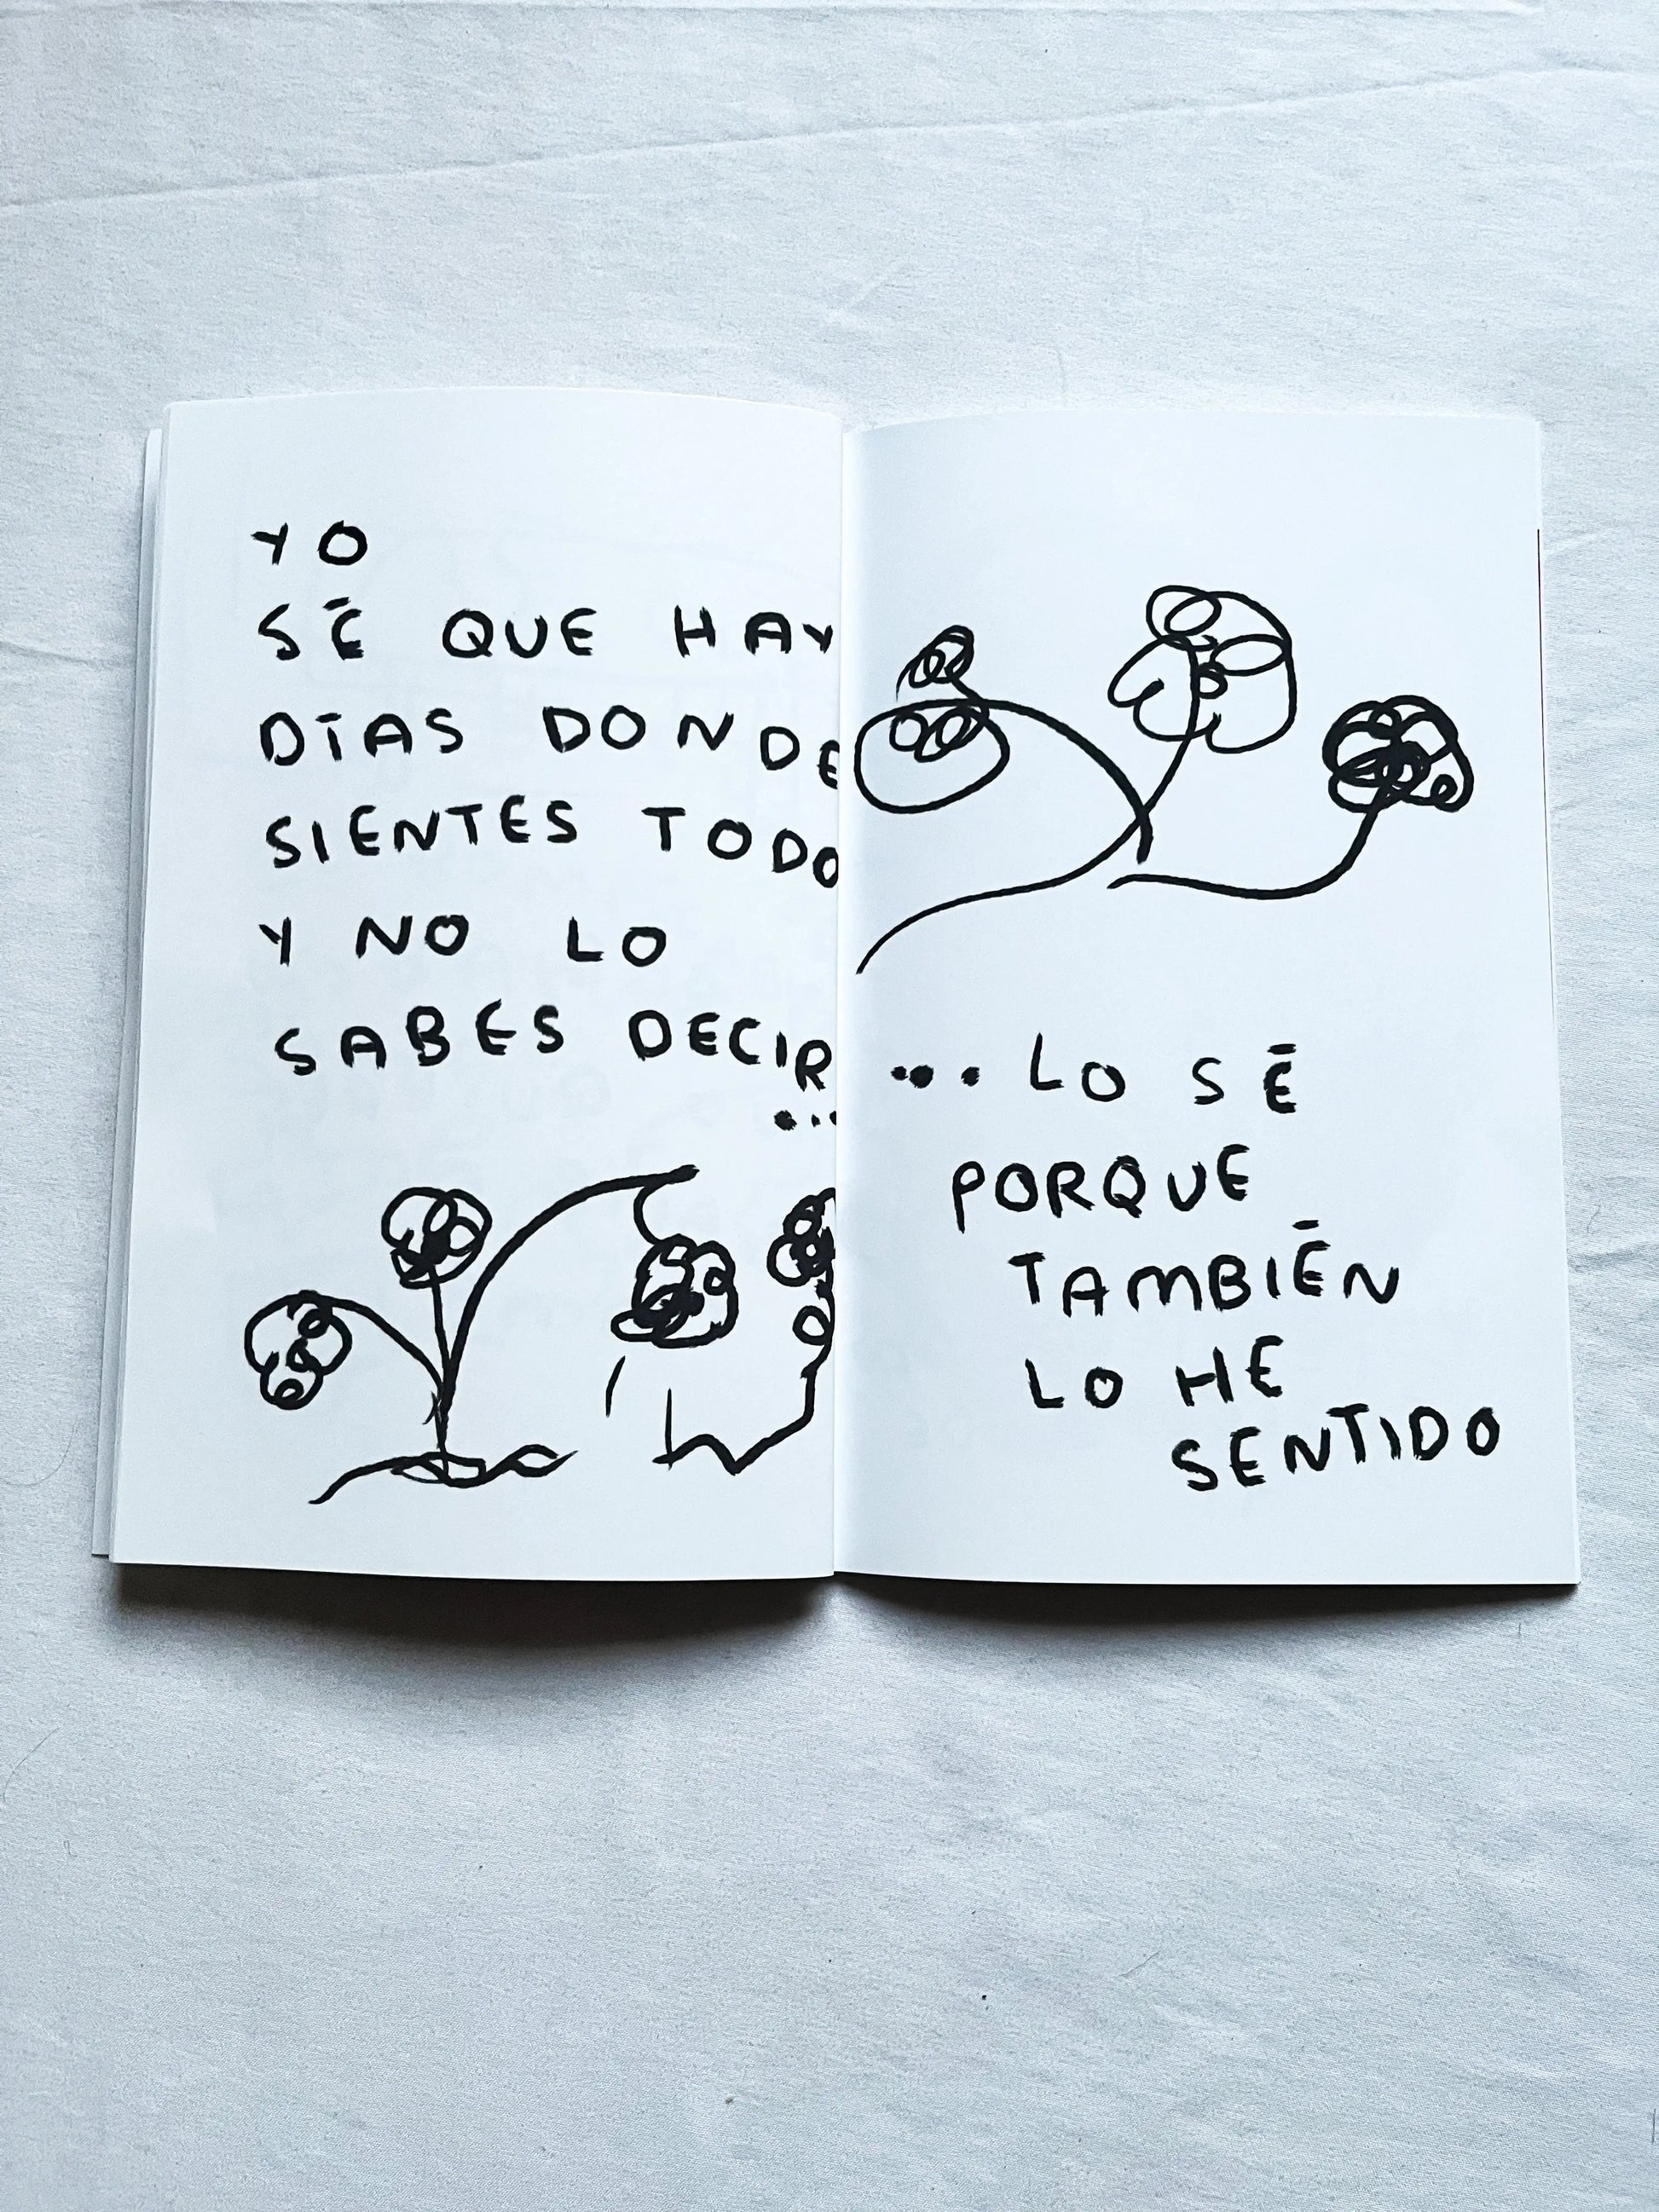 YO
SÉ QUE HAY
DÍAS DONDE
SIENTES TODO
Y NO LO
SABES DECIR
...
... LO SÉ
PORQUE
TAMBIÉN
LO HE
SENTIDO